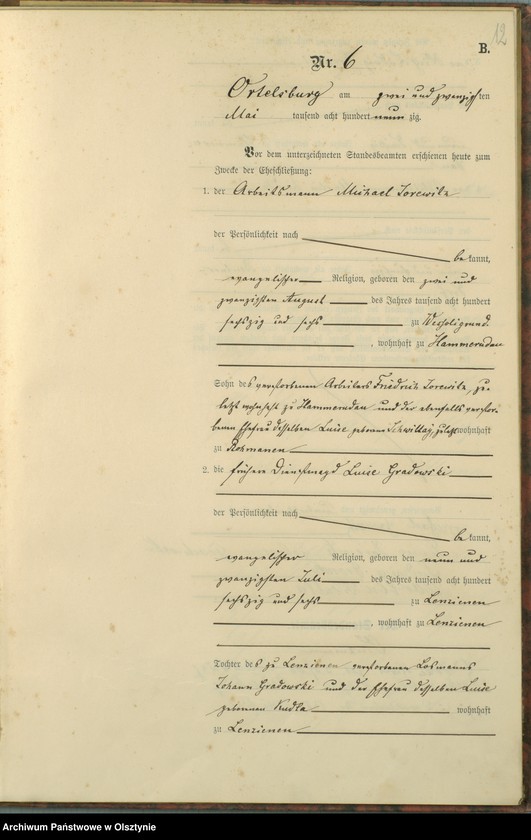 12
B.
Nr. 6
Ortelsburg am zwei und zwanzigsten
Mai tausend acht hundert neun zig.
Vor dem unterzeichneten Standesbeamten erschienen heute zum
Zwecke der Eheschließung:
1. der Arbeitsmann Michael Sorewitz
der Persönlichkeit nach
be kannt,
evangelischer Religion, geboren den zwei und
zwanzigsten August des Jahres tausend acht hundert
sechszig und sechs zu
, wohnhaft zu Hammerudau
Sohn des verstorbenen Arbeiters Friedrich Sorewitz, zu-
letzt wohnhaft zu Hammerudau und der ebenfalls verstor-
benen Ehefrau desselben Luise geborene Schwittay, zuletzt wohnhaft
zu Rohmanen
2. die frühere Dienstmagd Luise Gradowski
der Persönlichkeit nach
be kannt,
evangelischer Religion, geboren den neun und
zwanzigsten Juli des Jahres tausend acht hundert
sechszig und sechs zu Lenzienen
, wohnhaft zu Lenzienen
Tochter des zu Lenzienen verstorbenen Losmanns
Johann Gradowski und der Ehefrau desselben Luise
geborenen Kudla wohnhaft
zu Lenzienen
Archiwum Państwowe w Olsztynie